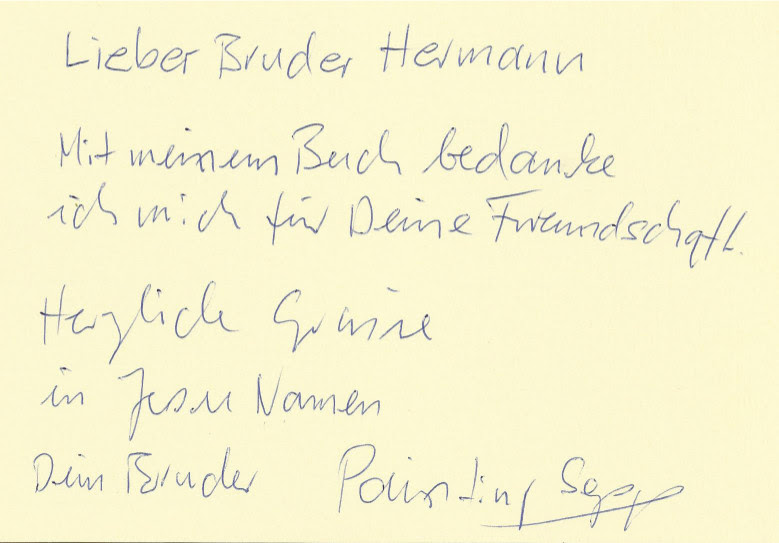 Lieber Bruder Hermann
Mit meinem Buch bedanke
ich mich für Deine Freundschaft.
Herzliche Grüsse
in Jesu Namen
Dein Bruder Painting Sepp